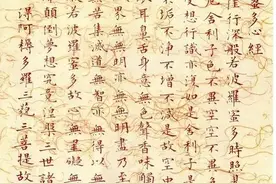 蜜多心經
行深般若波羅蜜多時照見
厄舍利子色不異空空不異
受想行識亦復如是舍利子是
不垢不淨不增不減是故空中
耳鼻舌身意無色聲香味觸
界無無明亦無無明盡乃至
苦集滅道無智亦無得以無
若波羅蜜多故心無罣礙無
顛倒夢想究竟涅槃三世諸
得阿耨多羅三藐三菩提故